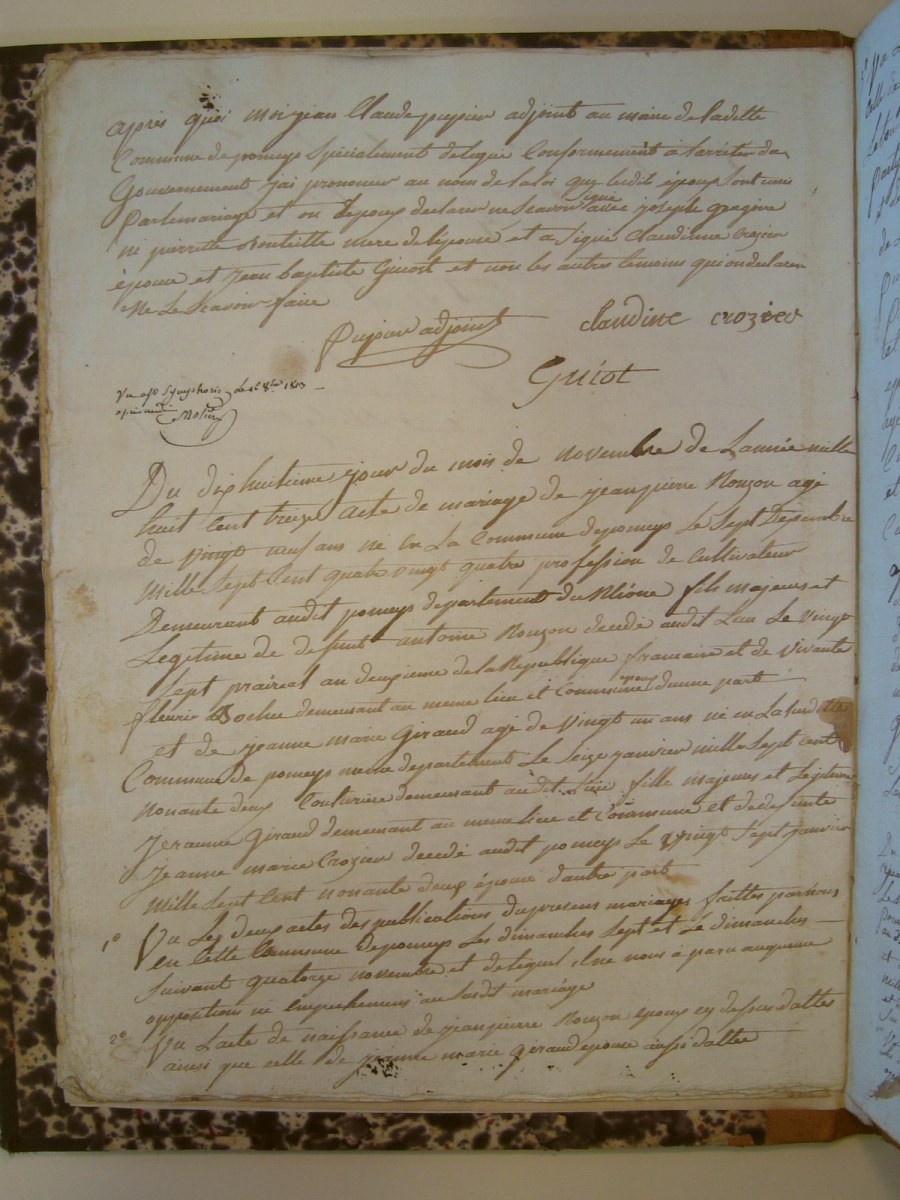 après quoi moi jean Claude pupier adjoint au maire de ladette
Commune de pomeys Spécialement délégué Conformement à larrêter du
Gouvernement jai prononcer au nom de la loi que lesdits époux Sont unis
Par le mariage et on époux declarer ne Scavoir signe avec joseph gregoire
ni pierrette bouteille mere de lépouse et a Signé Claudinne Crozier
épouse et jean baptiste Guiot et non les autres temoins qui on declarer
Ne Le Scavoir faire
Pupier adjoint
claudine crozier
Guiot
Vu a St Symphorien le
Du dix huitieme jour du mois de novembre de Lannée mille
huit Cent treize acte de mariage de jean pierre Ronzon agé
de vingt neuf ans né en La Commune de pomeys Le Sept Dexembre
Mille Sept Cent quatre vingt quatre profession de Cultivateur
Demeurant audit pomeys departement du Rhône fils majeur et
Legitime de defunt antoine Ronzon decedé audit Lieu Le vingt
Sept prairial an deuxieme de la Republique francaise et de vivante
fleurie Bochu demeurant au meme lieu et Commune époux dunne part
et de jeanne marie Giraud agé de vingt un ans né en La susditte
Commune de pomeys meme departement Le Seize janvier mille Sept Cent
Nonante deux Couturiere demeurant audit Lieu fille majeure et Legitime
Giraud demeurant au meme lieu et Commune et de defunte
jeanne marie Crozier decedé audit pomeys Le vingt Sept janvier
Mille Sept Cent nonante deux épouse dautre part
1° Vu Les deux actes des publications du presens mariages faittes par nous
en Cette Commune de pomeys Les dimanches Sept et Le dimanches
Suivant quatorze novembre et delequel il ne nous à paru aucunne
opposition ni empechemens au Susdit mariage
2° Vu Lacte de naissance de jean pierre Ronzon époux cy dessus dattes
ainsi que celle de jeanne marie giraud épouse aussi dattée